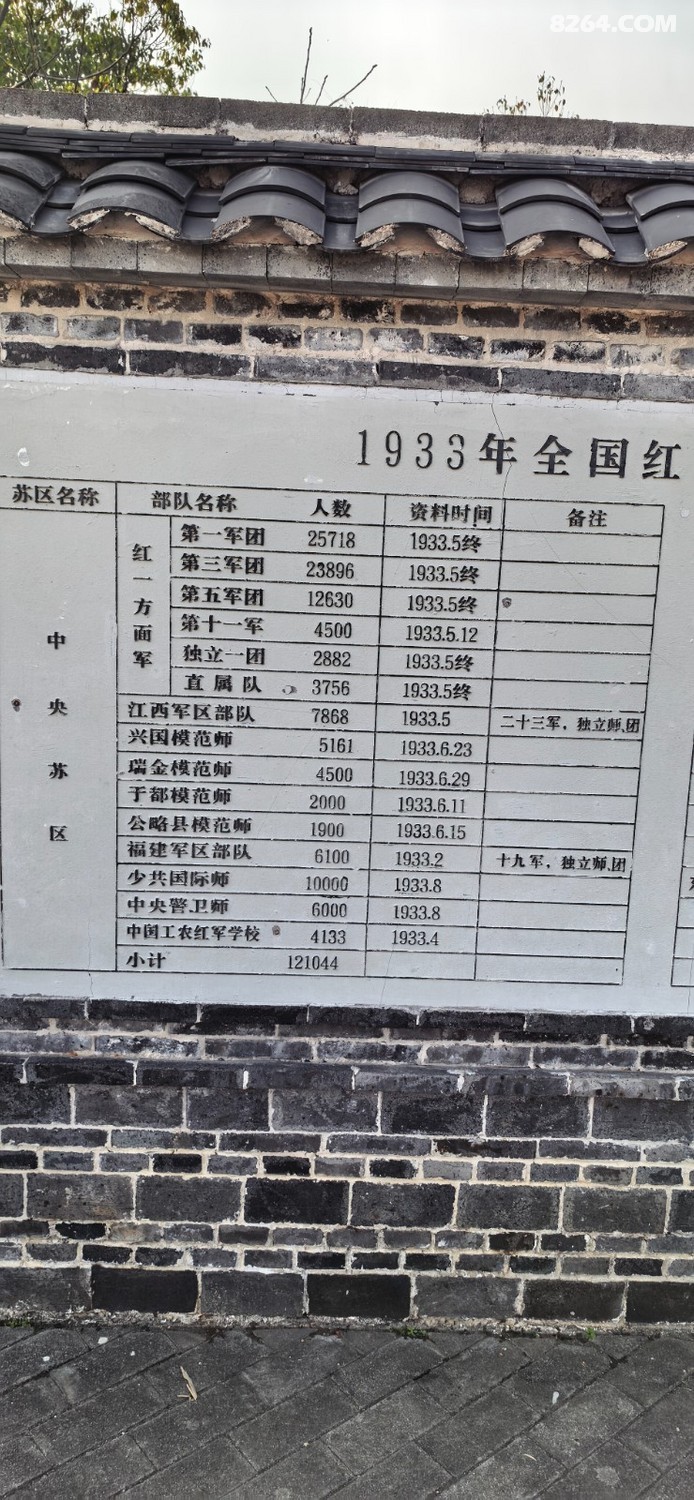 8264.COM
1933年全国红
苏区名称 部队名称 人数 资料时间 备注
中央苏区
红一方面军
第一军团 25718 1933.5终
第三军团 23896 1933.5终
第五军团 12630 1933.5终
第十一军 4500 1933.5.12
独立一团 2882 1933.5终
直属队 3756 1933.5终
江西军区部队 7868 1933.5 二十三军，独立师.团
兴国模范师 5161 1933.6.23
瑞金模范师 4500 1933.6.29
于都模范师 2000 1933.6.11
公略县模范师 1900 1933.6.15
福建军区部队 6100 1933.2 十九军，独立师.团
少共国际师 10000 1933.8
中央警卫师 6000 1933.8
中国工农红军学校 4133 1933.4
小计 121044